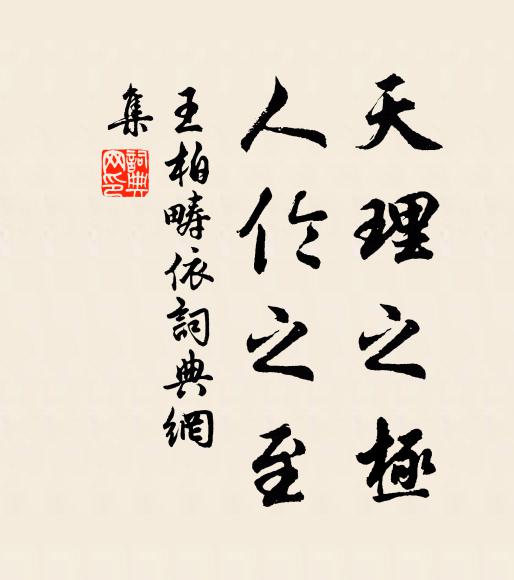 天理之極
人倫之至
王柏疇依詞典網
集
詞典
网印